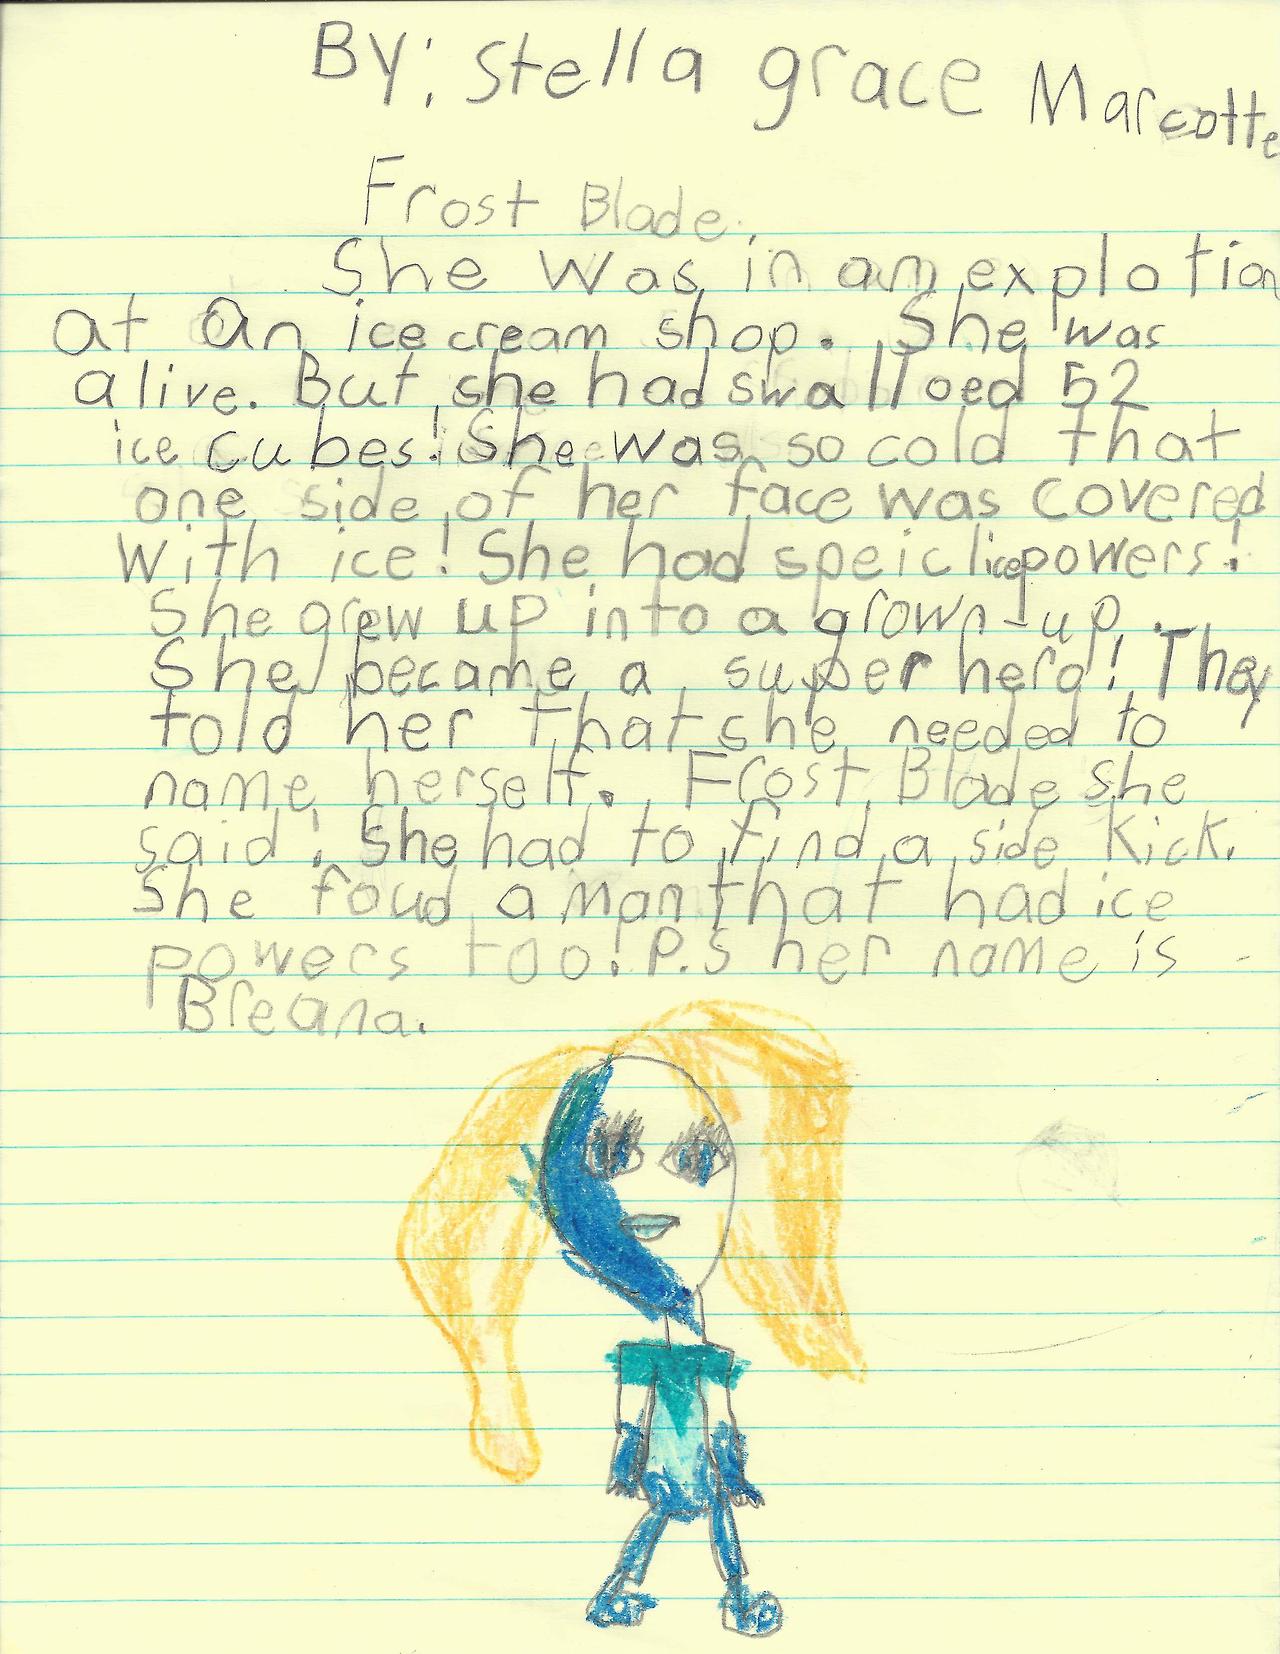 By; Stella grace Marcotte
Frost Blade.
She was in an explotion
at an ice cream shop. She was
alive. But she had swalloed 52
ice cubes! She was so cold that
one side of her face was covered
with ice! She had speicl ice powers!
She grew up into a grown-up.
She became a super hero! They
told her that she needed to
name herself. Frost Blade she
said! She had to find a side kick.
She foud a man that had ice
powers too! P.S her name is
Breana.